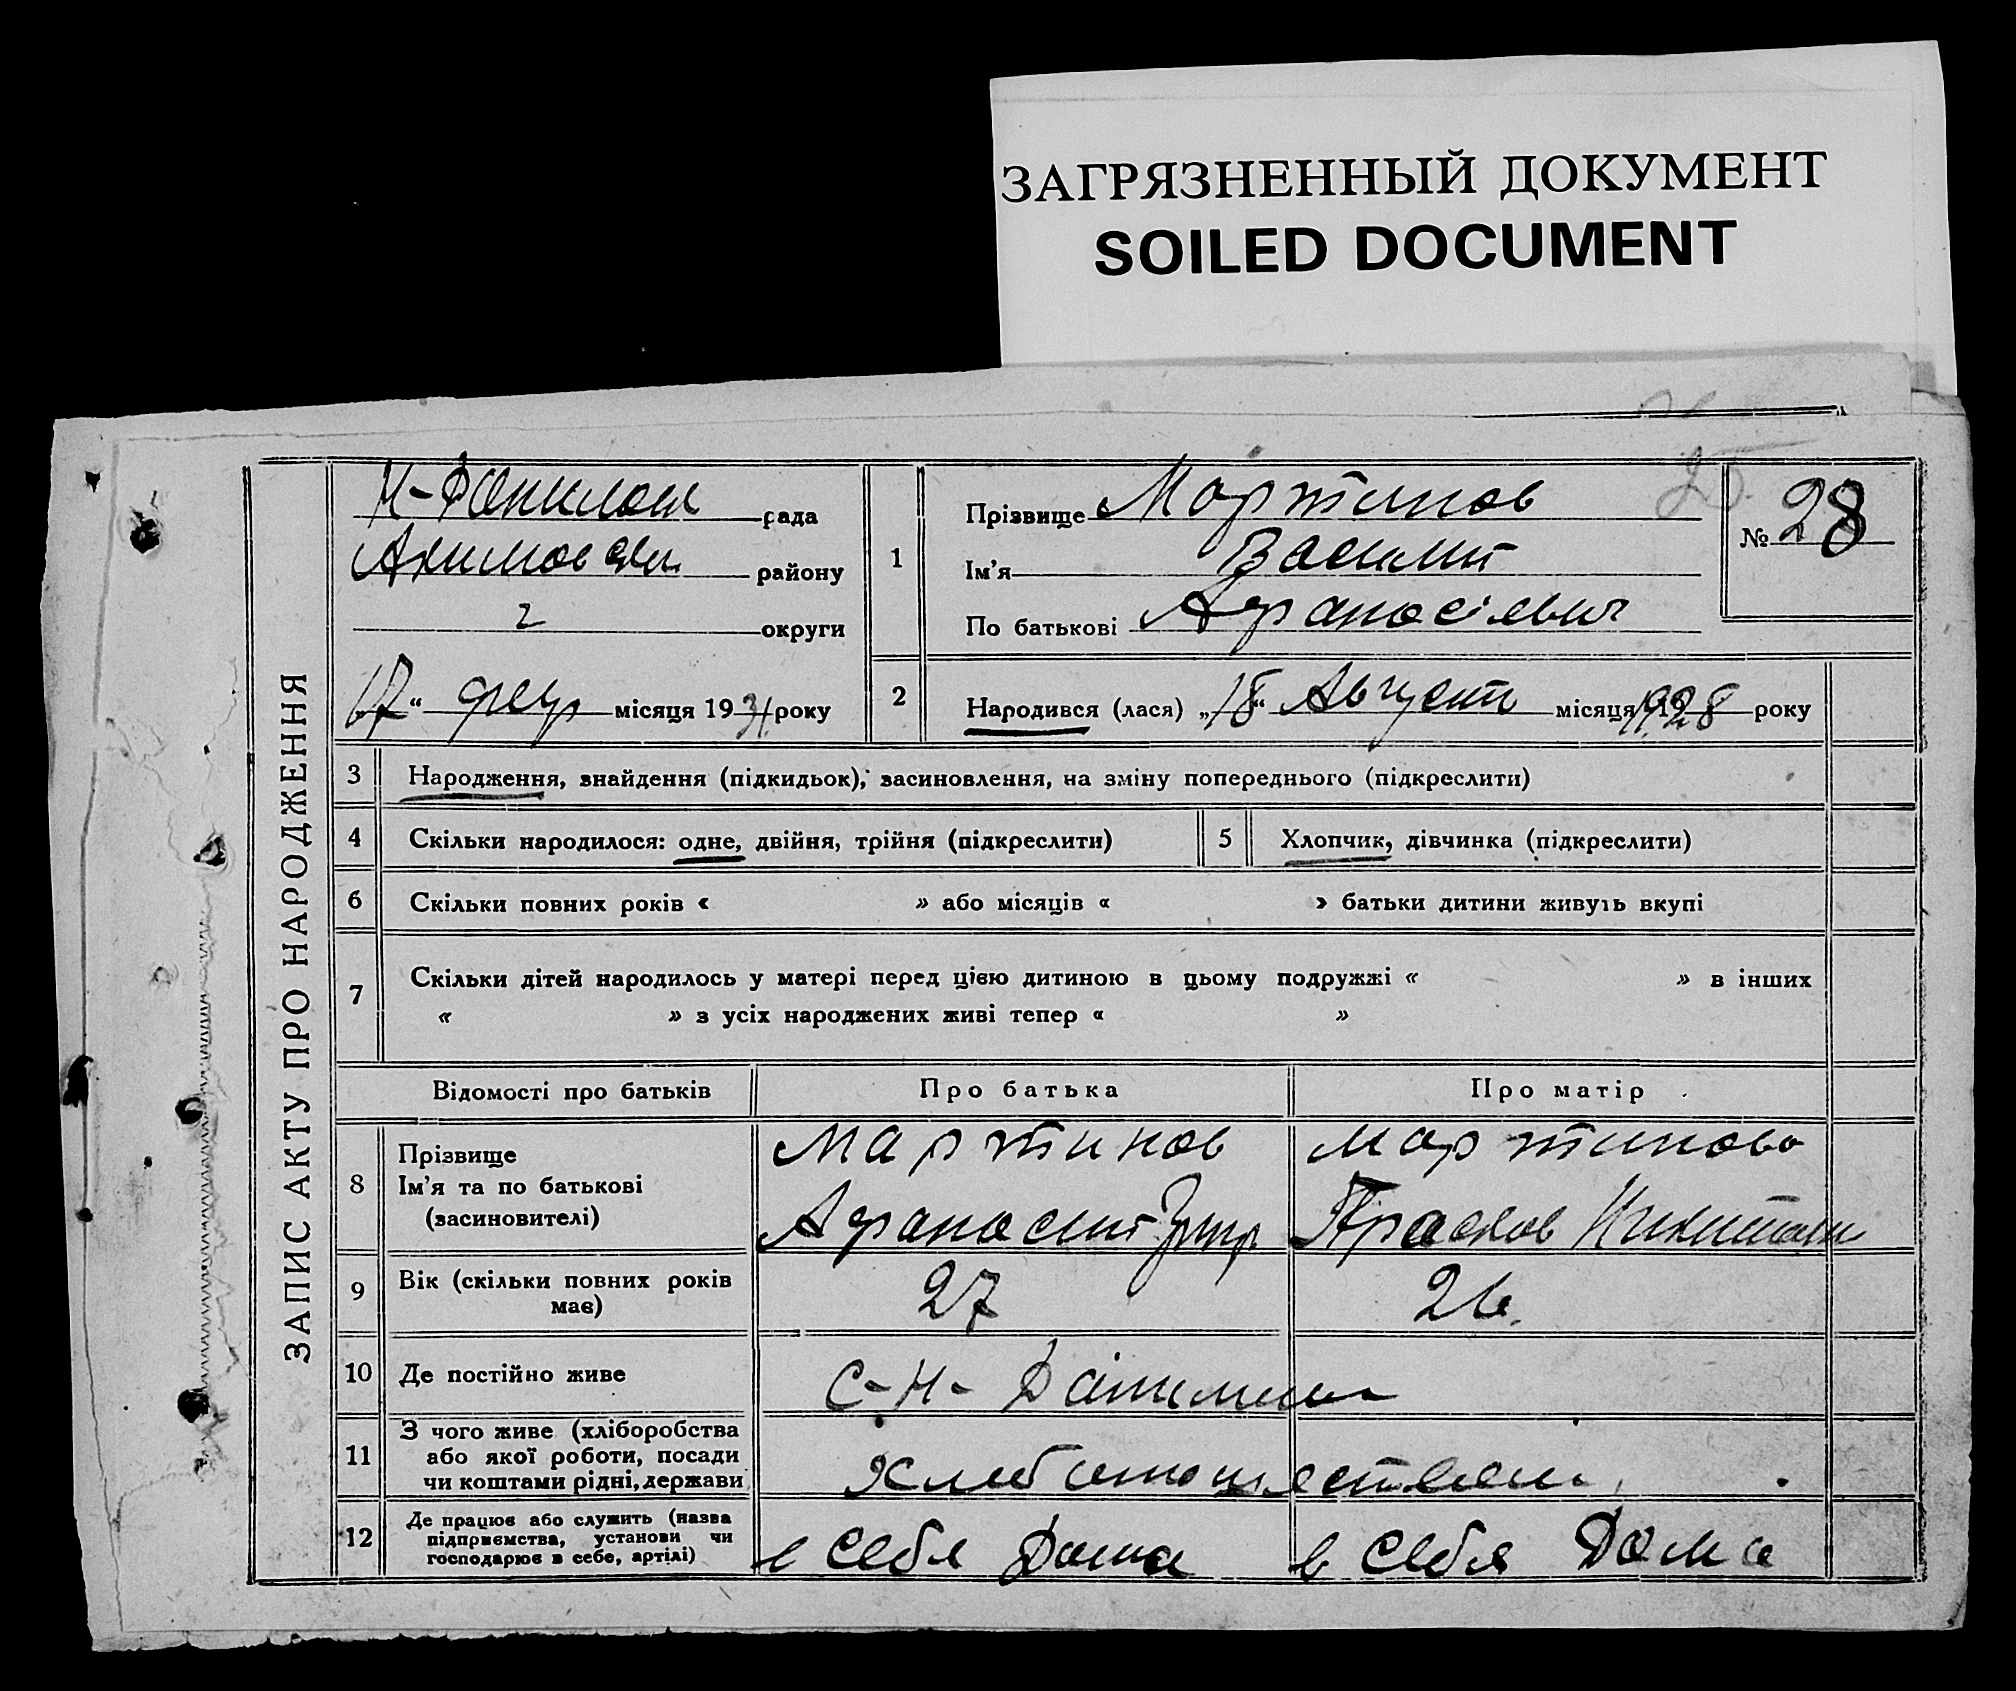 ЗАГРЯЗНЕННЫЙ ДОКУМЕНТ
SOILED DOCUMENT
ЗАПИС АКТУ ПРО НАРОДЖЕННЯ
рада
району
округи
17 " февр місяця 1931 року
1
Прізвище Мартинов
Ім'я Василий
По батькові Афанасієвич
№ 28
2
Народився (лася) „18" Август місяця 1928 року
3 Народження, знайдення (підкидьок), засиновлення, на зміну попереднього (підкреслити)
4 Скільки народилося: одне, двійня, трійня (підкреслити) 5 Хлопчик, дівчинка (підкреслити)
6 Скільки повних років « » або місяців « » батьки дитини живуть вкупі
7 Скільки дітей народилось у матері перед цією дитиною в цьому подружжі « » в інших
« » з усіх народжених живі тепер « »
Відомості про батьків Про батька Про матір
8 Прізвище Мартинов Мартинова
Ім'я та по батькові Афанасий
(засиновителі)
9 Вік (скільки повних років 27 26.
має)
10 Де постійно живе С-Н-
11 З чого живе (хліборобства
або якої роботи, посади
чи коштами рідні, держави
12 Де працює або служить (назва
підприємства, установи чи
господарює в себе, артілі)
в себя Дома в себя Дома